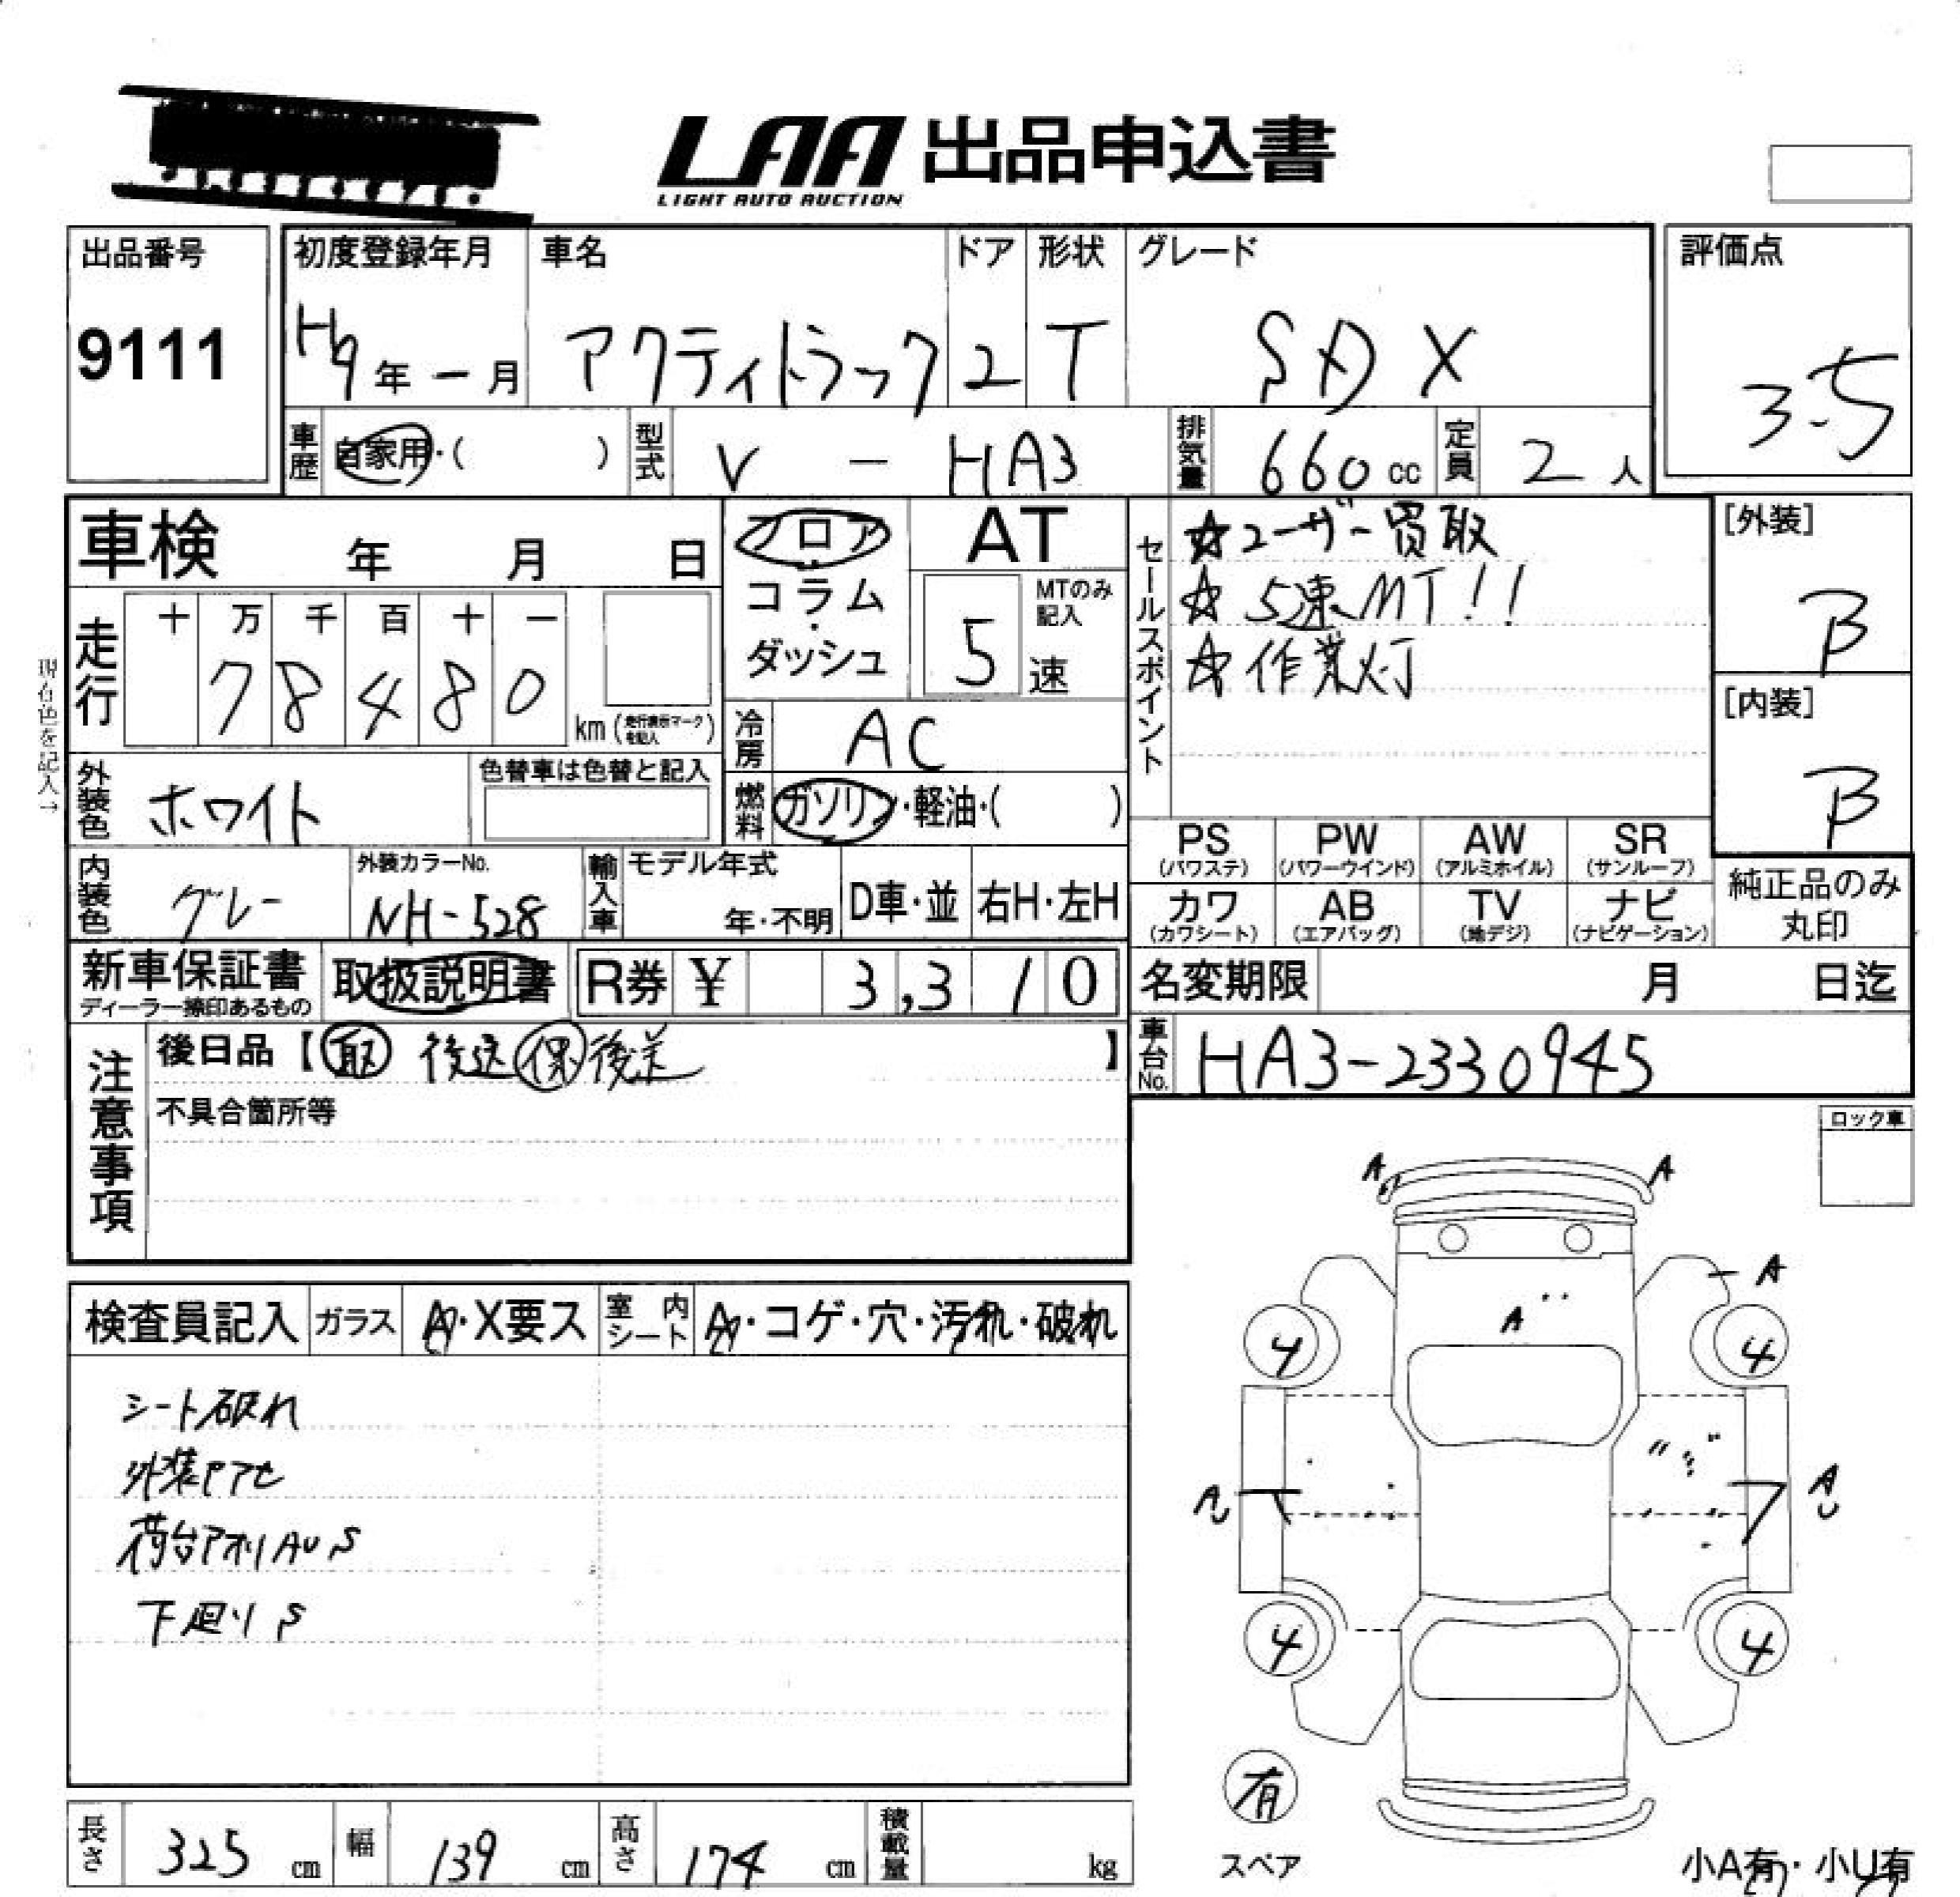 LAA 出品申込書
LIGHT AUTO AUCTION
出品番号
9111
初度登録年月
H9年 - 月
車名
アクティトラック
ドア
2
形状
T
グレード
SDX
評価点
3.5
車歴 自家用・( )
型式 V - HA3
排気量 660 cc
定員 2 人
車検 年 月 日
フロア
コラム
・
ダッシュ
AT
MTのみ記入
5 速
セールスポイント
☆ユーザー買取
☆5速MT!!
☆作業灯
[外装]
B
[内装]
B
現在色を記入→
走行 十 万 千 百 十 一
7 8 4 8 0
km (走行表示マークを記入)
冷房 AC
燃料 ガソリン・軽油・( )
外装色 ホワイト
色替車は色替と記入
内装色 グレー
外装カラーNo.
NH-528
輸入車
モデル年式
年・不明
D車・並
右H・左H
PS
(パワステ)
PW
(パワーウインド)
AW
(アルミホイル)
SR
(サンルーフ)
カワ
(カワシート)
AB
(エアバッグ)
TV
(地デジ)
ナビ
(ナビゲーション)
純正品のみ
丸印
新車保証書
ディーラー捺印あるもの
取扱説明書
R券 ¥ 3,310
名変期限 月 日迄
車台No. HA3-2330945
注意事項
後日品【取 後送 保 後送】
不具合箇所等
ロック車
検査員記入
ガラス A・X要ス
室内シート A・コゲ・穴・汚れ・破れ
シート破れ
外装
荷台アオリAUS
下廻りS
A
A
A
A
4
4
AU
4
4
有
スペア
小A有・小U有
長さ 325 cm
幅 139 cm
高さ 174 cm
積載量 kg